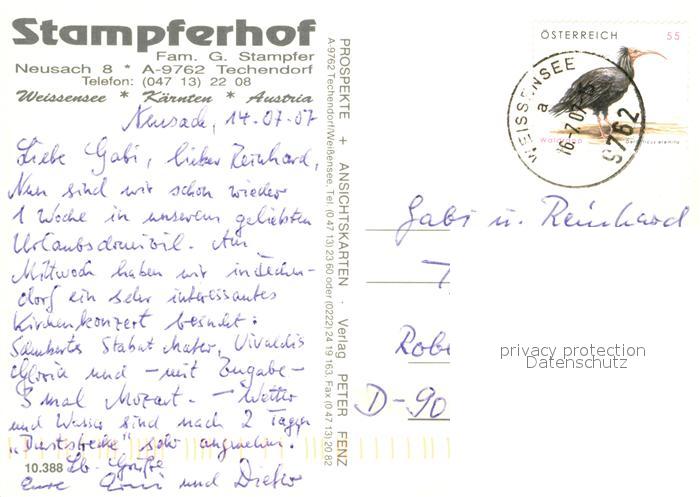 Stampferhof
Fam. G. Stampfer
Neusach 8 * A-9762 Techendorf
Telefon: (047 13) 22 08
Weissensee * Kärnten * Austria
Neusach, 14.07.07
Liebe Gabi, lieber Reinhard,
Nun sind wir schon wieder
1 Woche in unserem geliebten
Urlaubsdomizil. Am
Mittwoch haben wir in Techen-
dorf ein sehr interessantes
Kirchenkonzert besucht:
Schuberts Stabat Mater, Vivaldis
Gloria und - mit Zugabe -
3 mal Mozart. - Wetter
und Wasser sind nach 2 Tagen
"Durststrecke" sehr angenehm.
Lb. Grüße
Eure und Dieter
10.388
PROSPEKTE + ANSICHTSKARTEN · Verlag PETER FENZ
A-9762 Techendorf/Weißensee, Tel. (0 47 13) 23 60 oder (0222) 24 19 163, Fax (0 47 13) 20 82
ÖSTERREICH 55
Waldrapp
WEISSENSEE
a
9762
Gabi u. Reinhard
T
Robe
D-90
privacy protection
Datenschutz